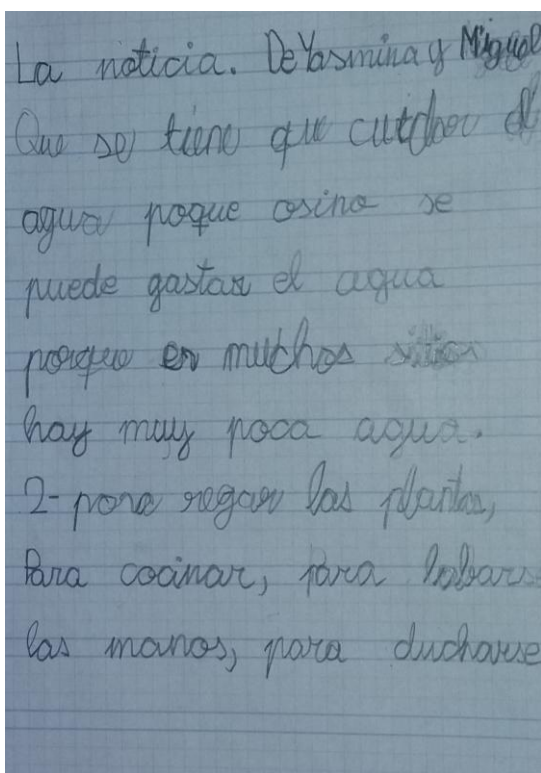 La noticia. De Yasmina y Miguel
Que se tiene que cuidar el
agua poque osino se
puede gastar el agua
porque en muchos sitios
hay muy poca agua.
2- para regar las plantas,
Para cocinar, para labars
las manos, para ducharse